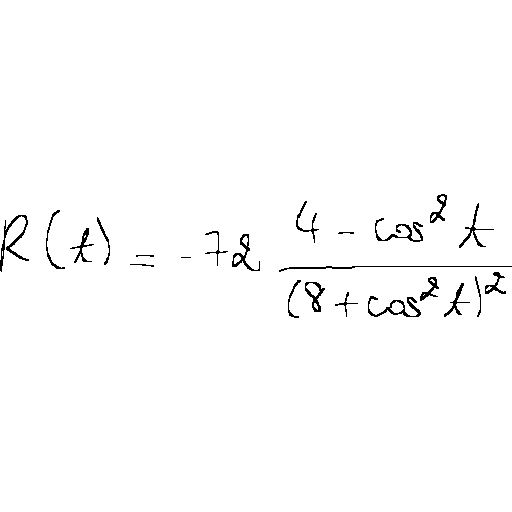 R(t) = -72 \frac{4 - \cos^2 t}{(8 + \cos^2 t)^2}